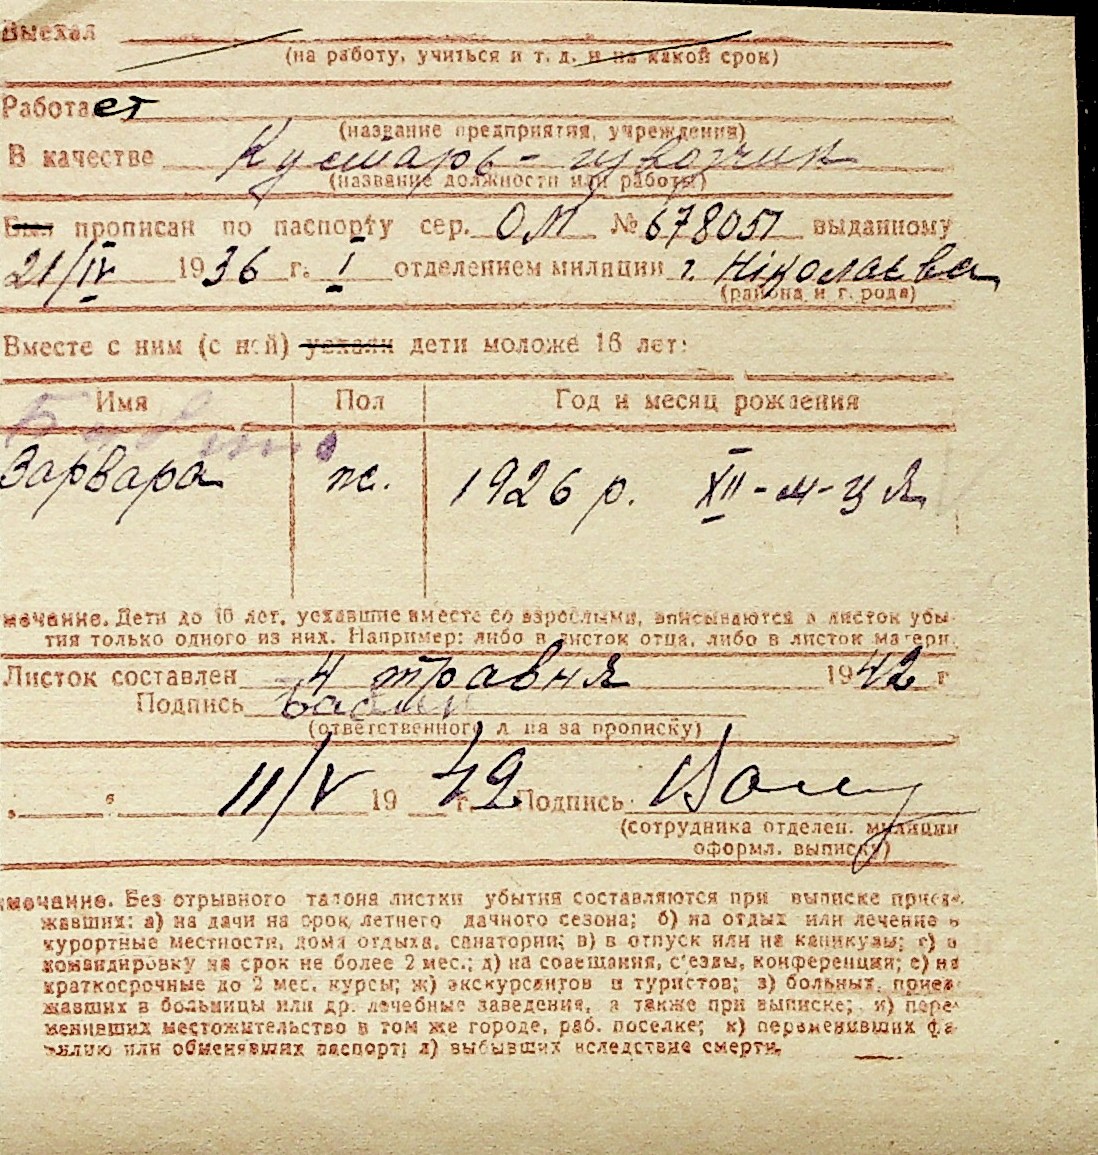 Выехал
(на работу, учиться и т. д. и на какой срок)
Работает
(название предприятия, учреждения)
В качестве Кустарь-
(название должности или работы)
Был прописан по паспорту сер. ОМ № 678051 выданному
21/IV 1936 г. I отделением милиции г. Ніколаєва
(района и города)
Вместе с ним (с ней) уехали дети моложе 16 лет:
Имя Пол Год и месяц рождения
Варвара ж. 1926 р. XII-м-ця
мечание. Дети до 16 лет, уехавшие вместе со взрослыми, вписываются в листок убы-
тия только одного из них. Например: либо в листок отца, либо в листок матери.
Листок составлен 4 травня 1942 г
Подпись
(ответственного лица за прописку)
11/V 19 42 г. Подпись
(сотрудника отделен. милиции
оформл. выписку)
мечание. Без отрывного талона листки убытия составляются при выписке приез-
жавших: а) на дачи на срок летнего дачного сезона; б) на отдых или лечение в
курортные местности, дома отдыха, санатории; в) в отпуск или на каникулы; г) в
командировку на срок не более 2 мес.; д) на совещания, с'езды, конференции; е) на
краткосрочные до 2 мес. курсы; ж) экскурсантов и туристов; з) больных, приез-
жавших в больницы или др. лечебные заведения, а также при выписке; и) пере-
менивших местожительство в том же городе, раб. поселке; к) переменивших фа-
милию или обменявших паспорт; л) выбывших вследствие смерти.